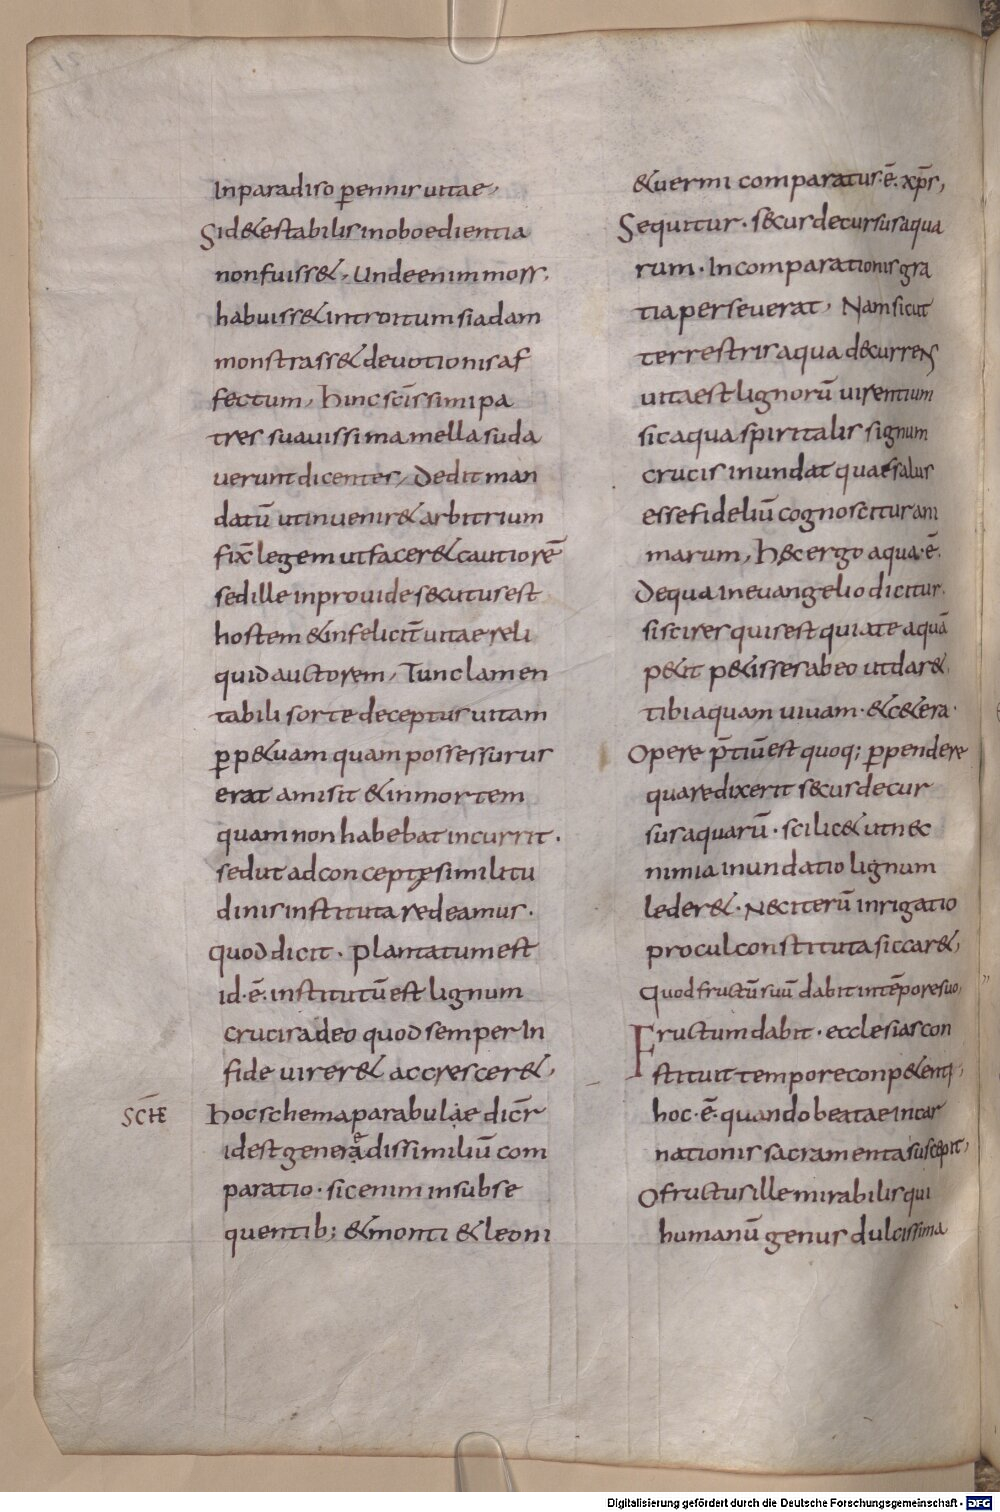 In paradiso p̲ennis uitae,
Sid&estabilis inoboedientia
non fuiss&, Unde enim moss.
habuiss& introitum si adam
monstrass& deuotionis af
fectum, Hinc sc̄issimi pa
tres suauissima mella suda
uerunt dicentes, Dedit man
datū ut inuenir& arbitrium
fix̄ legem ut facer& cautiorē
sed ille inprouide secutus est
hostem & infelicit̄ uitae reli
quid auctorem, Tunc lamen
tabili sorte deceptus uitam
p̲p&uam quam possessurus
erat amisit & in mortem
quam non habebat incurrit.
sed ut ad conceptę similitu
dinis instituta redeamus.
quod dicit. plantatum est
id.ē. institutū est lignum
crucis adeo quod semper In
fide uirer& accrescer&,
SCHĒ
Hoc schema parabulae dicr̄
idest genere dissimiliū com
paratio. sic enim in subse
quentib; & monti & leoni
& uermi comparatus.ē. xp̄s,
Sequitur. secus decursus aqua
rum. In comparationis gra
tia perseuerat, Nam sicut
terrestris aqua decurrens
uita est lignorū uirentium
sic aqua spiritalis signum
crucis inundat quae salus
esse fideliū cognoscitur ani
marum, Hęc ergo aqua.ē.
De qua in euangelio dicitur.
si scires quis est qui a te aquā
p&it p&isses ab eo ut dar&
tibi aquam uiuam. & c&era.
Opere p̄tiū est quoq; p̲pendere
quare dixerit secus decur
sus aquarū. scilic& ut nec
nimia inundatio lignum
leder&. Nec iterū inrigatio
procul constituta siccar&,
Quod fructū suū dabit in tēpore suo,
Fructum dabit. ecclesias con
stituit tempore conp&enti,
hoc.ē. quando beatae incar
nationis sacramenta suscepit,
O fructus ille mirabilis qui
humanū genus dulcissima
Digitalisierung gefördert durch die Deutsche Forschungsgemeinschaft - DFG